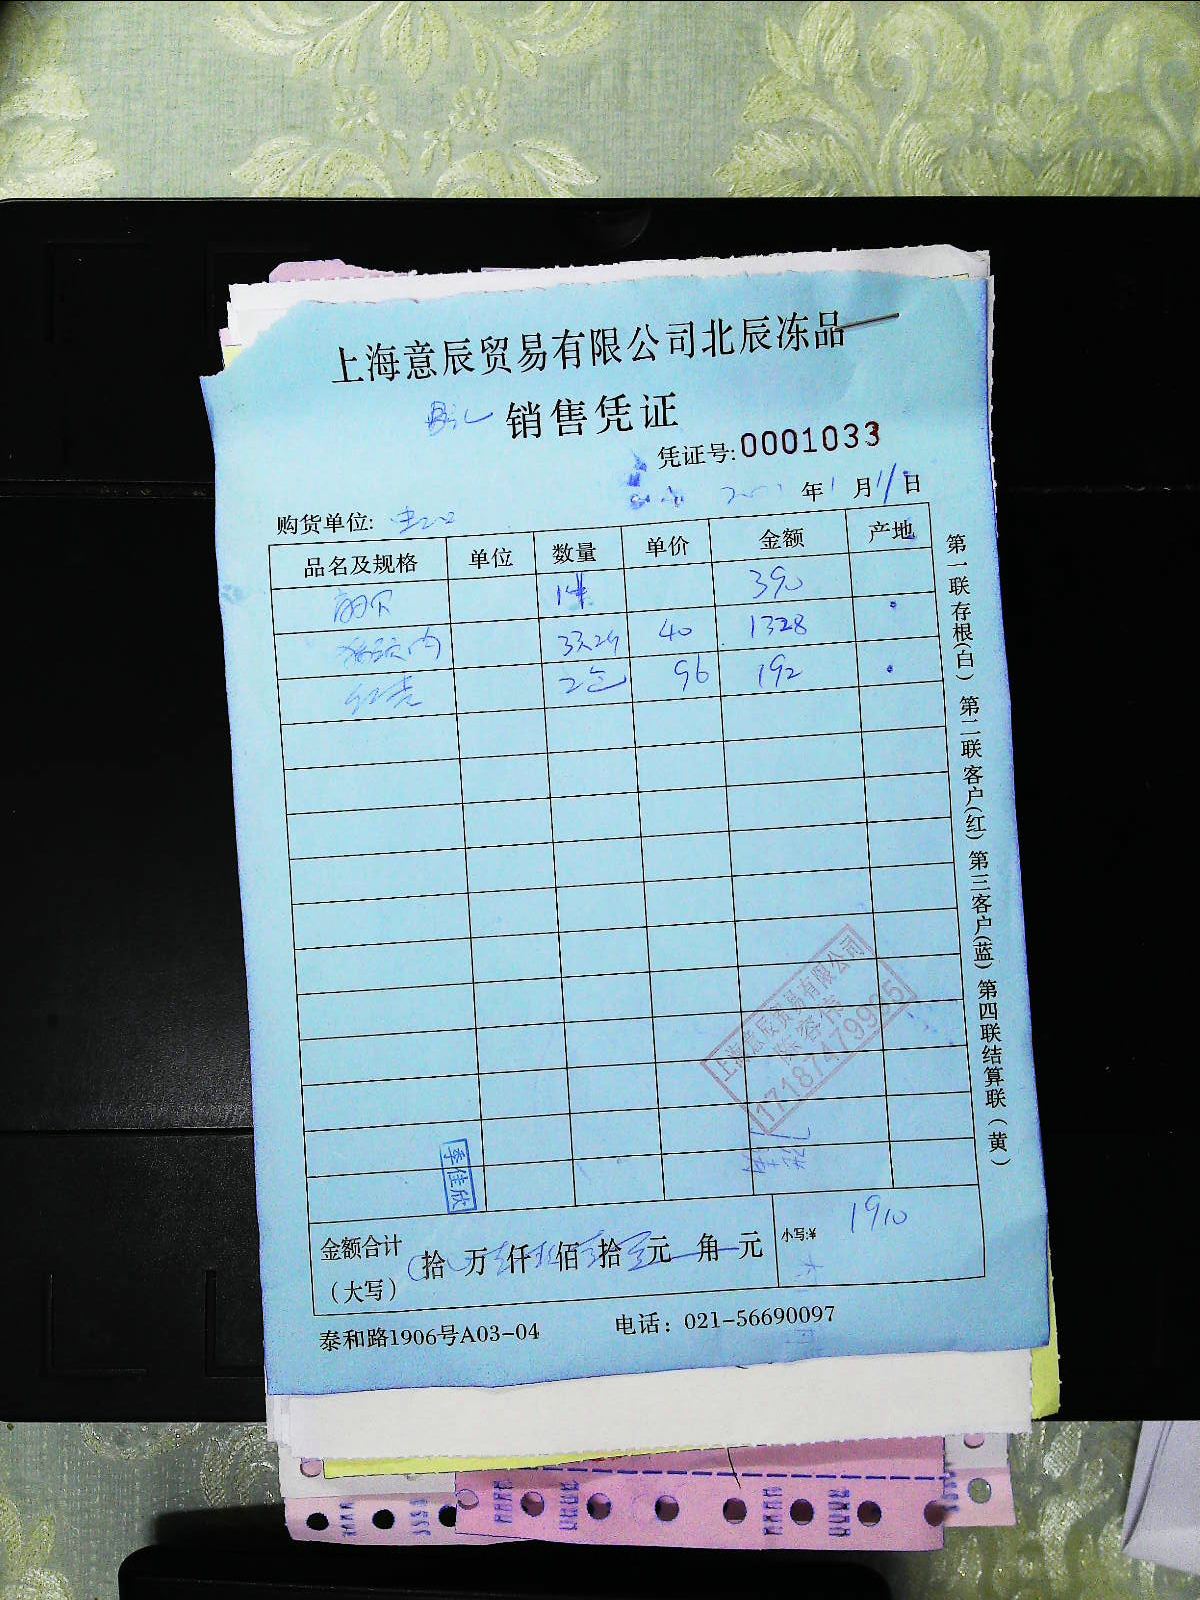 上海意辰贸易有限公司北辰冻品
销售凭证
凭证号:0001033
年1月11日
购货单位:
品名及规格 单位 数量 单价 金额 产地
390
40 1328
红壳 2包 96 192
上海意辰贸易有限公司
17187479995
季佳欣
金额合计(大写) 拾 万 仟 佰 拾 元 角 元 小写:¥ 1910
泰和路1906号A03-04 电话：021-56690097
第一联存根(白) 第二联客户(红) 第三客户(蓝) 第四联结算联(黄)